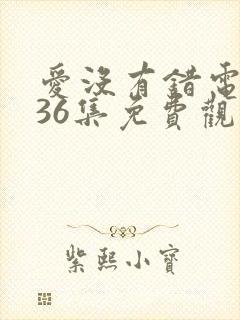 愛沒有錯電
36集免費觀
紫熙小寶